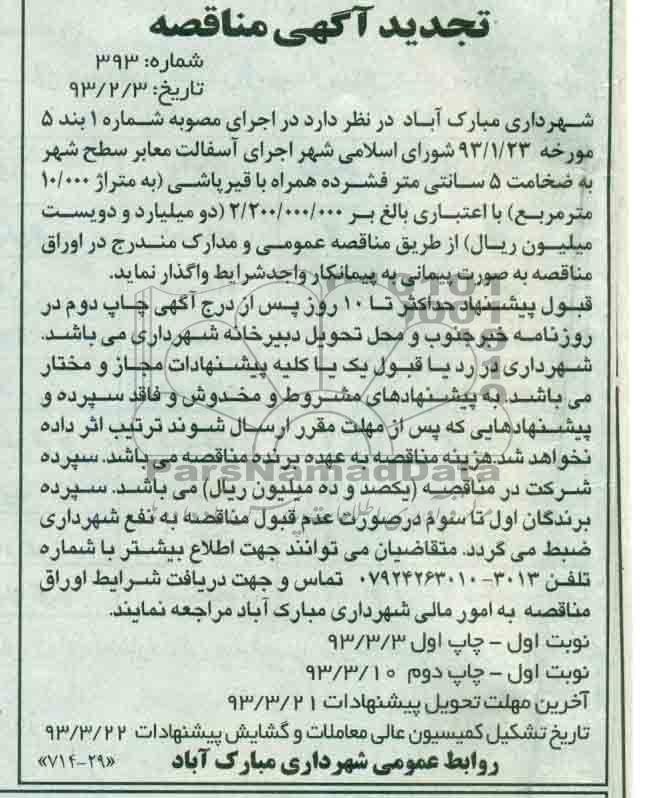 تجدید آگهی مناقصه
شماره: ۳۹۳
تاریخ: ۹۳/۲/۳
شهرداری مبارک آباد در نظر دارد در اجرای مصوبه شماره ۱ بند ۵
مورخه ۹۳/۱/۲۳ شورای اسلامی شهر اجرای آسفالت معابر سطح شهر
به ضخامت ۵ سانتی متر فشرده همراه با قیرپاشی (به متراژ ۱۰/۰۰۰
مترمربع) با اعتباری بالغ بر ۲/۲۰۰/۰۰۰/۰۰۰ (دو میلیارد و دویست
میلیون ریال) از طریق مناقصه عمومی و مدارک مندرج در اوراق
مناقصه به صورت پیمانی به پیمانکار واجدشرایط واگذار نماید.
قبول پیشنهاد حداکثر تا ۱۰ روز پس از درج آگهی چاپ دوم در
روزنامه خبرجنوب و محل تحویل دبیرخانه شهرداری می باشد.
شهرداری در رد یا قبول یک یا کلیه پیشنهادات مجاز و مختار
می باشد. به پیشنهادهای مشروط و مخدوش و فاقد سپرده و
پیشنهادهایی که پس از مهلت مقرر ارسال شوند ترتیب اثر داده
نخواهد شد. هزینه مناقصه به عهده برنده مناقصه می باشد. سپرده
ParsNamadData
شرکت در مناقصه (یکصد و ده میلیون ریال) می باشد. سپرده
برندگان اول تا سوم درصورت عدم قبول مناقصه به نفع شهرداری
ضبط می گردد. متقاضیان می توانند جهت اطلاع بیشتر با شماره
تلفن ۳۰۱۳-۰۷۹۲۴۲۶۳۰۱۰ تماس و جهت دریافت شرایط اوراق
مناقصه به امور مالی شهرداری مبارک آباد مراجعه نمایند.
نوبت اول - چاپ اول ۹۳/۳/۳
نوبت اول - چاپ دوم ۹۳/۳/۱۰
آخرین مهلت تحویل پیشنهادات ۹۳/۳/۲۱
تاریخ تشکیل کمیسیون عالی معاملات و گشایش پیشنهادات ۹۳/۳/۲۲
روابط عمومی شهرداری مبارک آباد «۲۹-۷۱۴»